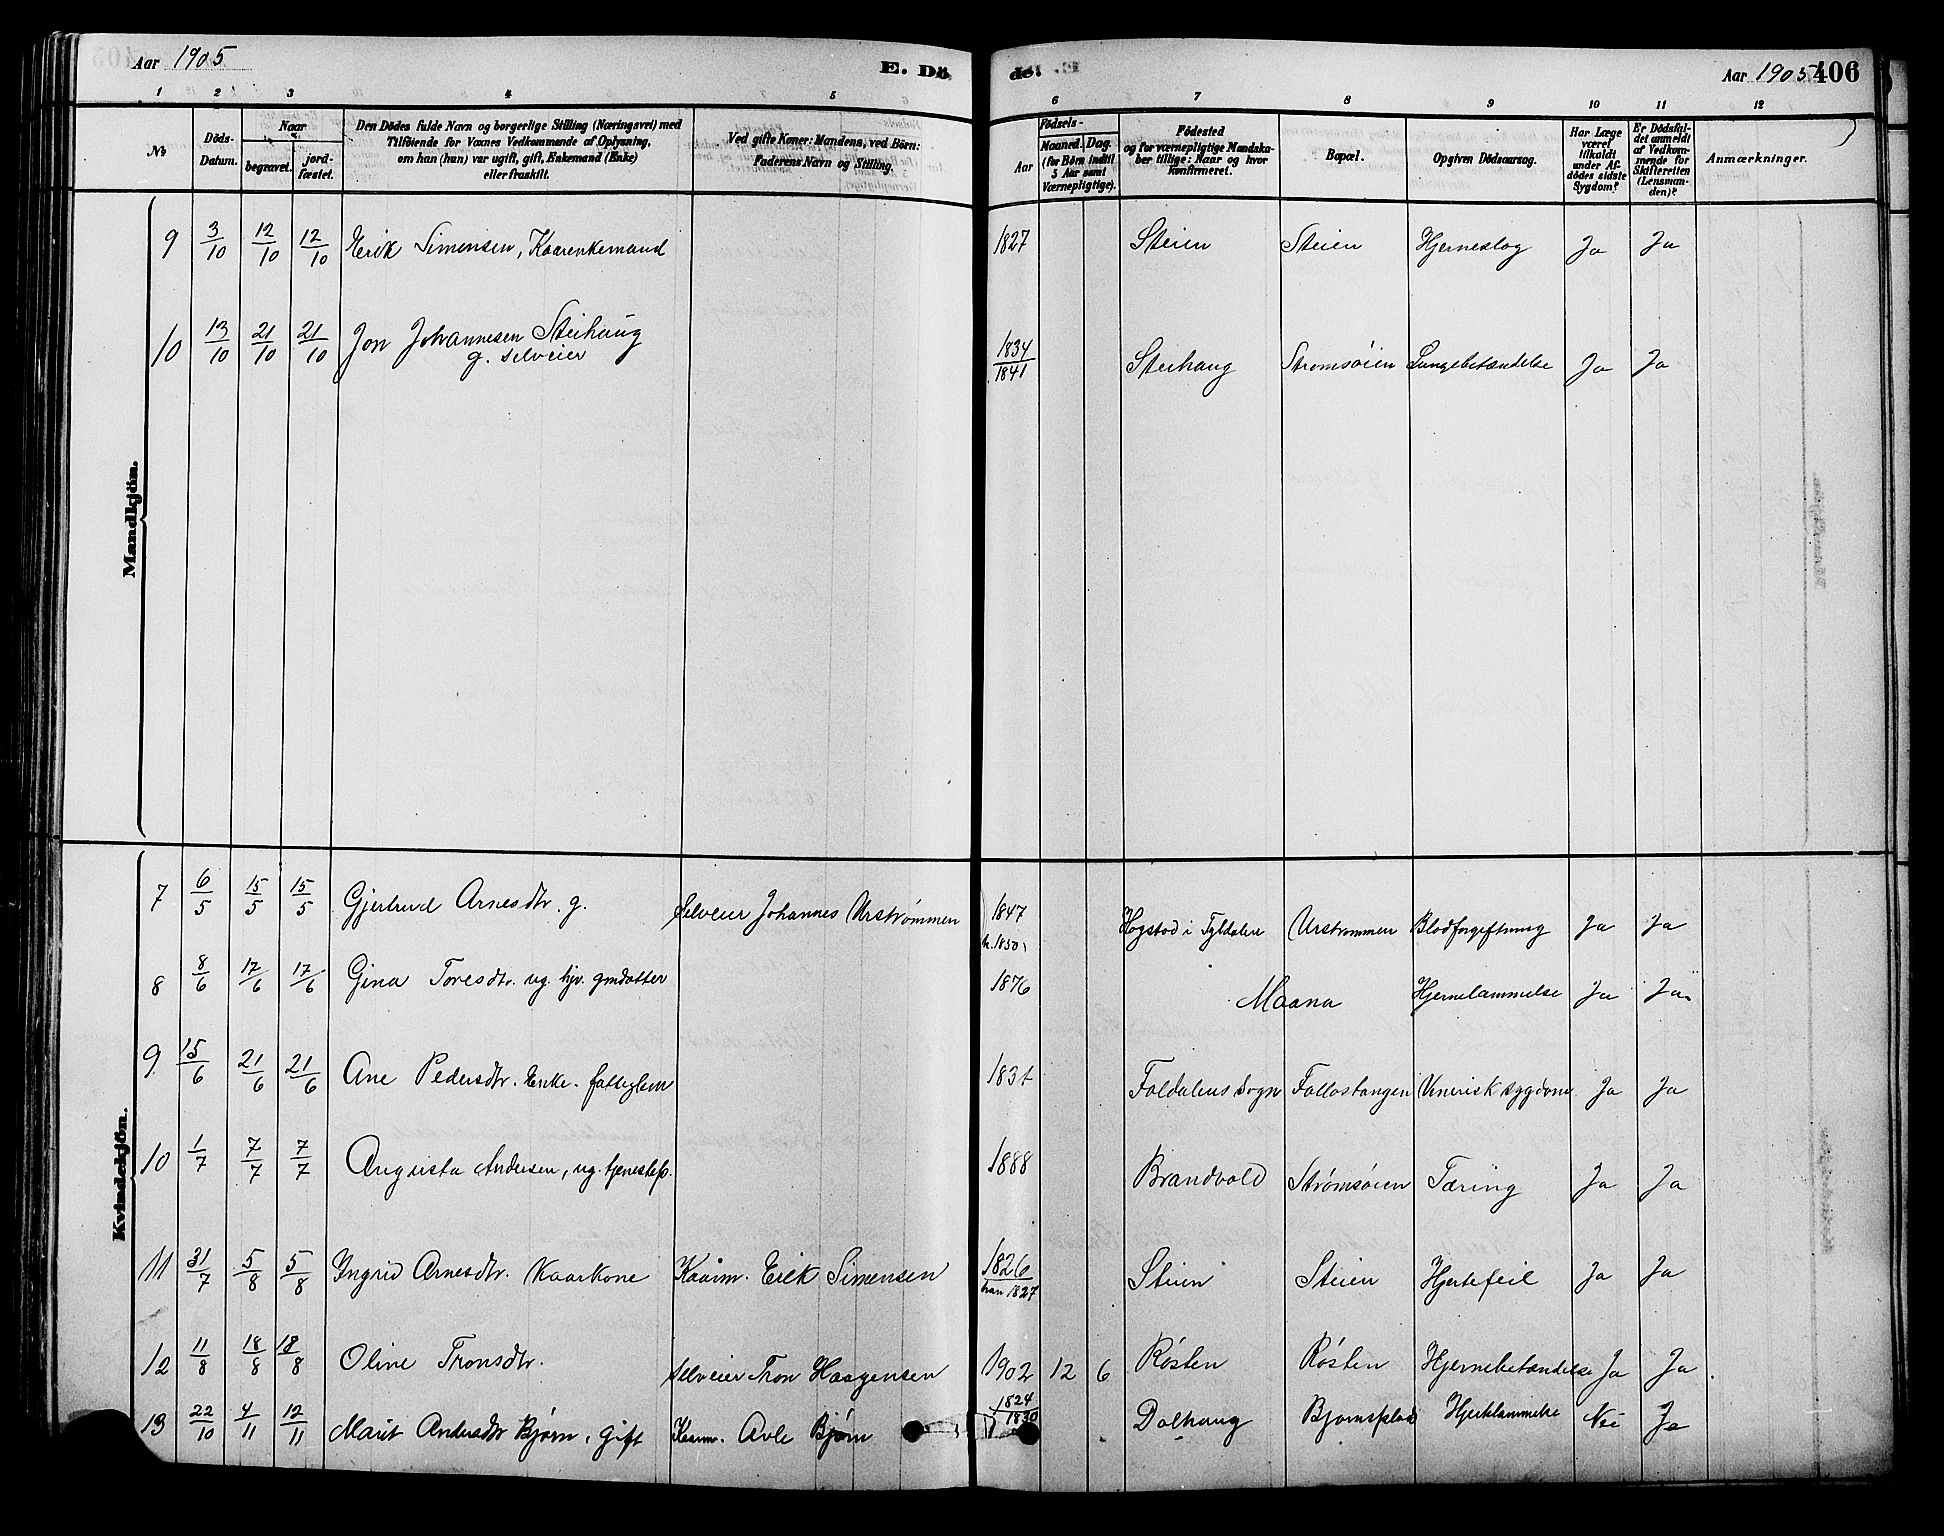 Aar 1905 E. Dö
de. Aar 1905. 406
1 2 3 4 5 6 7 8 9 10 11 12
No
Döds-Datum.
Naar
begravet.
jord-fæstet.
Den Dödes fulde Navn og borgerlige Stilling (Næringsvei) med
Tilföiende for Voxnes Vedkommende af Oplysning,
om han (hun) var ugift, gift, Enkemand (Enke)
eller fraskilt.
Ved gifte Koner: Mandens, ved Börn:
Faderens Navn og Stilling.
Födsels-
Aar
Maaned. Dag.
(for Börn indtil
5 Aar samt
Værnepligtige).
Födested
og for værnepligtige Mandska-
ber tillige: Naar og hvor
konfirmeret.
Bopæl.
Opgiven Dödsaarsag.
Har Læge
været
tilkaldt
under Af-
dödes sidste
Sygdom?
Er Dödsfal-
det anmeldt
af Vedkom-
mende for
Skifteretten
(Lensman-
den)?
Anmærkninger.
Mandkjön.
9 3/10 12/10 12/10 Erik Simensen, Kaarenkemand 1827 Steien Steien Hjerneslag Ja Ja
10 13/10 21/10 21/10 Jon Johannesen Steihaug 1834/1841 Steihaug Strømsøien Lungebetændelse Ja Ja
g. selveier
Kvindekjön.
7 6/5 15/5 15/5 Gjertrud Arnesdtr. g. Selveier Johannes Urstrømmen 1847 Hogstad i Tyldalen Urstrømmen Blodforgiftning Ja Ja
1850
8 8/6 17/6 17/6 Gina Toresdtr. ug. hjv. gmdatter 1876 Maana Hjernelammelse Ja Ja
9 15/6 21/6 21/6 Ane Pedersdtr. Enke. fattiglem Foldalens Sogn Fallostangen Venerisk sygdom Ja Ja
10 1/7 7/7 7/7 Augusta Andersen, ug. tjenestep. 1888 Brandvold Strømsøien Tæring Ja Ja
11 31/7 5/8 5/8 Yngrid Arnesdtr. Kaarkone Kaarm. Erik Simensen 1826 Steien Steien Hjertefeil Ja Ja
1827
12 11/8 18/8 18/8 Oline Tronsdtr. Selveier Tron Haagensen 1902 12 6 Røsten Røsten Hjernebetændelse Ja Ja
13 22/10 4/11 12/11 Marit Andersdtr Bjørn, gift Kaarm. Avle Bjørn 1824/1830 Dalhaug Bjørnsplads Hjertelammelse Nei Ja